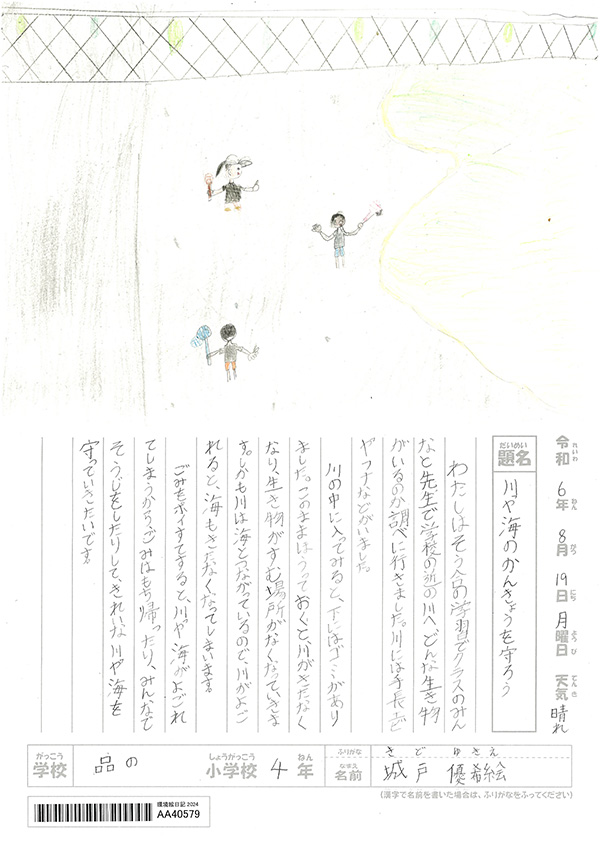 れいわ ねん がつ にち ようび てんき
令和6年8月19日月曜日 天気 晴れ
だいめい
題名 川や海のかんきょうを守ろう
わたしはそう合の学習でクラスのみん
なと先生で学校の近の川へ、どんな生き物
がいるのか調べに行きました。川には手長エビ
やフナなどがいました。
川の中に入ってみると、下にはゴミがあり
ました。このままほうっておくと、川がきたなく
なり、生き物がすむ場所がなくなっていきま
す。しかも川は海とつながっているので、川がよご
れると、海もきたなくなってしまいます。
ごみをポイすてすると、川や海がよごれ
てしまうから、ごみはもち帰ったり、みんなで
そうじをしたりして、きれいな川や海を
守っていきたいです。
がっこう しょうがっこう ねん ふりがな きど ゆきえ
学校 品の 小学校 4年 なまえ 名前 城戸 優希絵
(漢字で名前を書いた場合は、ふりがなをふってください)
環境絵日記 2024
AA40579